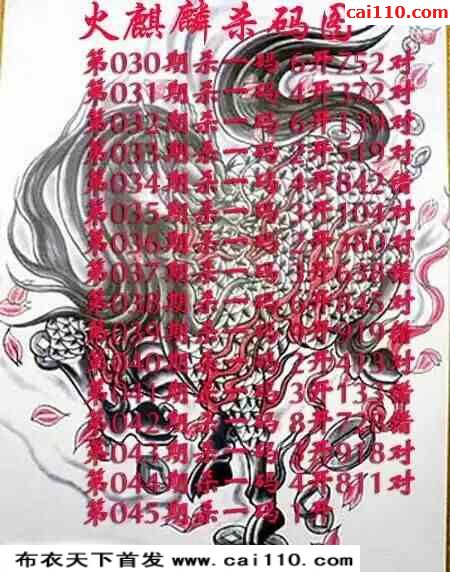 cai110.com
火麒麟杀码图
第030期杀一码 6开752对
第031期杀一码 4开372对
第032期杀一码 6开139对
第033期杀一码 2开519对
第034期杀一码 4开842错
第035期杀一码 3开104对
第036期杀一码 2开380对
第037期杀一码 3开638错
第038期杀一码 6开845对
第039期杀一码 9开919错
第040期杀一码 2开473对
第041期杀一码 3开133错
第042期杀一码 8开 错
第043期杀一码 开918对
第044期杀一码 4开811对
第045期杀一码 1开
布衣天下首发 www.cai110.com